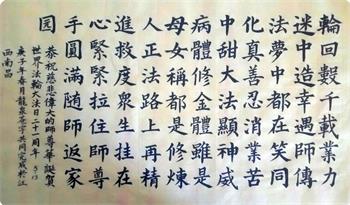 輪回數千載業力
迷中造幸遇師傳
法夢中都在笑同
化真善忍消業苦
中甜大法顯神威
病體修金體雖是
母女稱都是修煉
人正法路上再精
進救度眾生挂在
心緊緊拉住師尊
手圓滿随師返家
园
恭祝慈悲偉大的師尊華誕賀
世界法輪大法日二十一周年 5.13
庚子年春月龍泉字共同完成於江
西南昌